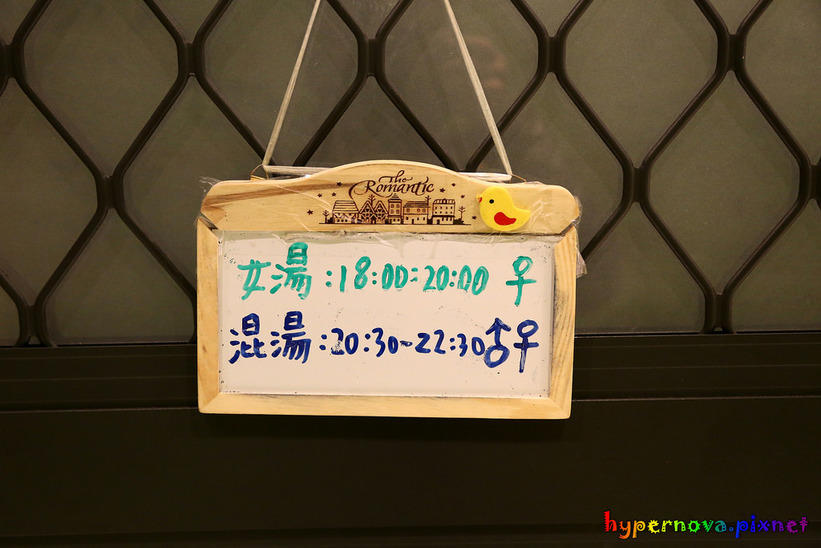 The
Romantic
女湯:18:00-20:00 ♀
混湯:20:30-22:30♂♀
hypernova.pixnet